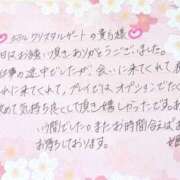 ホテルクリスタルゲートの貴方様
日はお誘い頂きありがとうございました。
仕事の途中でしたが、会いに来てくれて
来てくれて、プレイではオプションでたく
めて気持ち良くして頂き嬉しかったです。
い間でしたのでまたお時間合えば
お待ちしております。